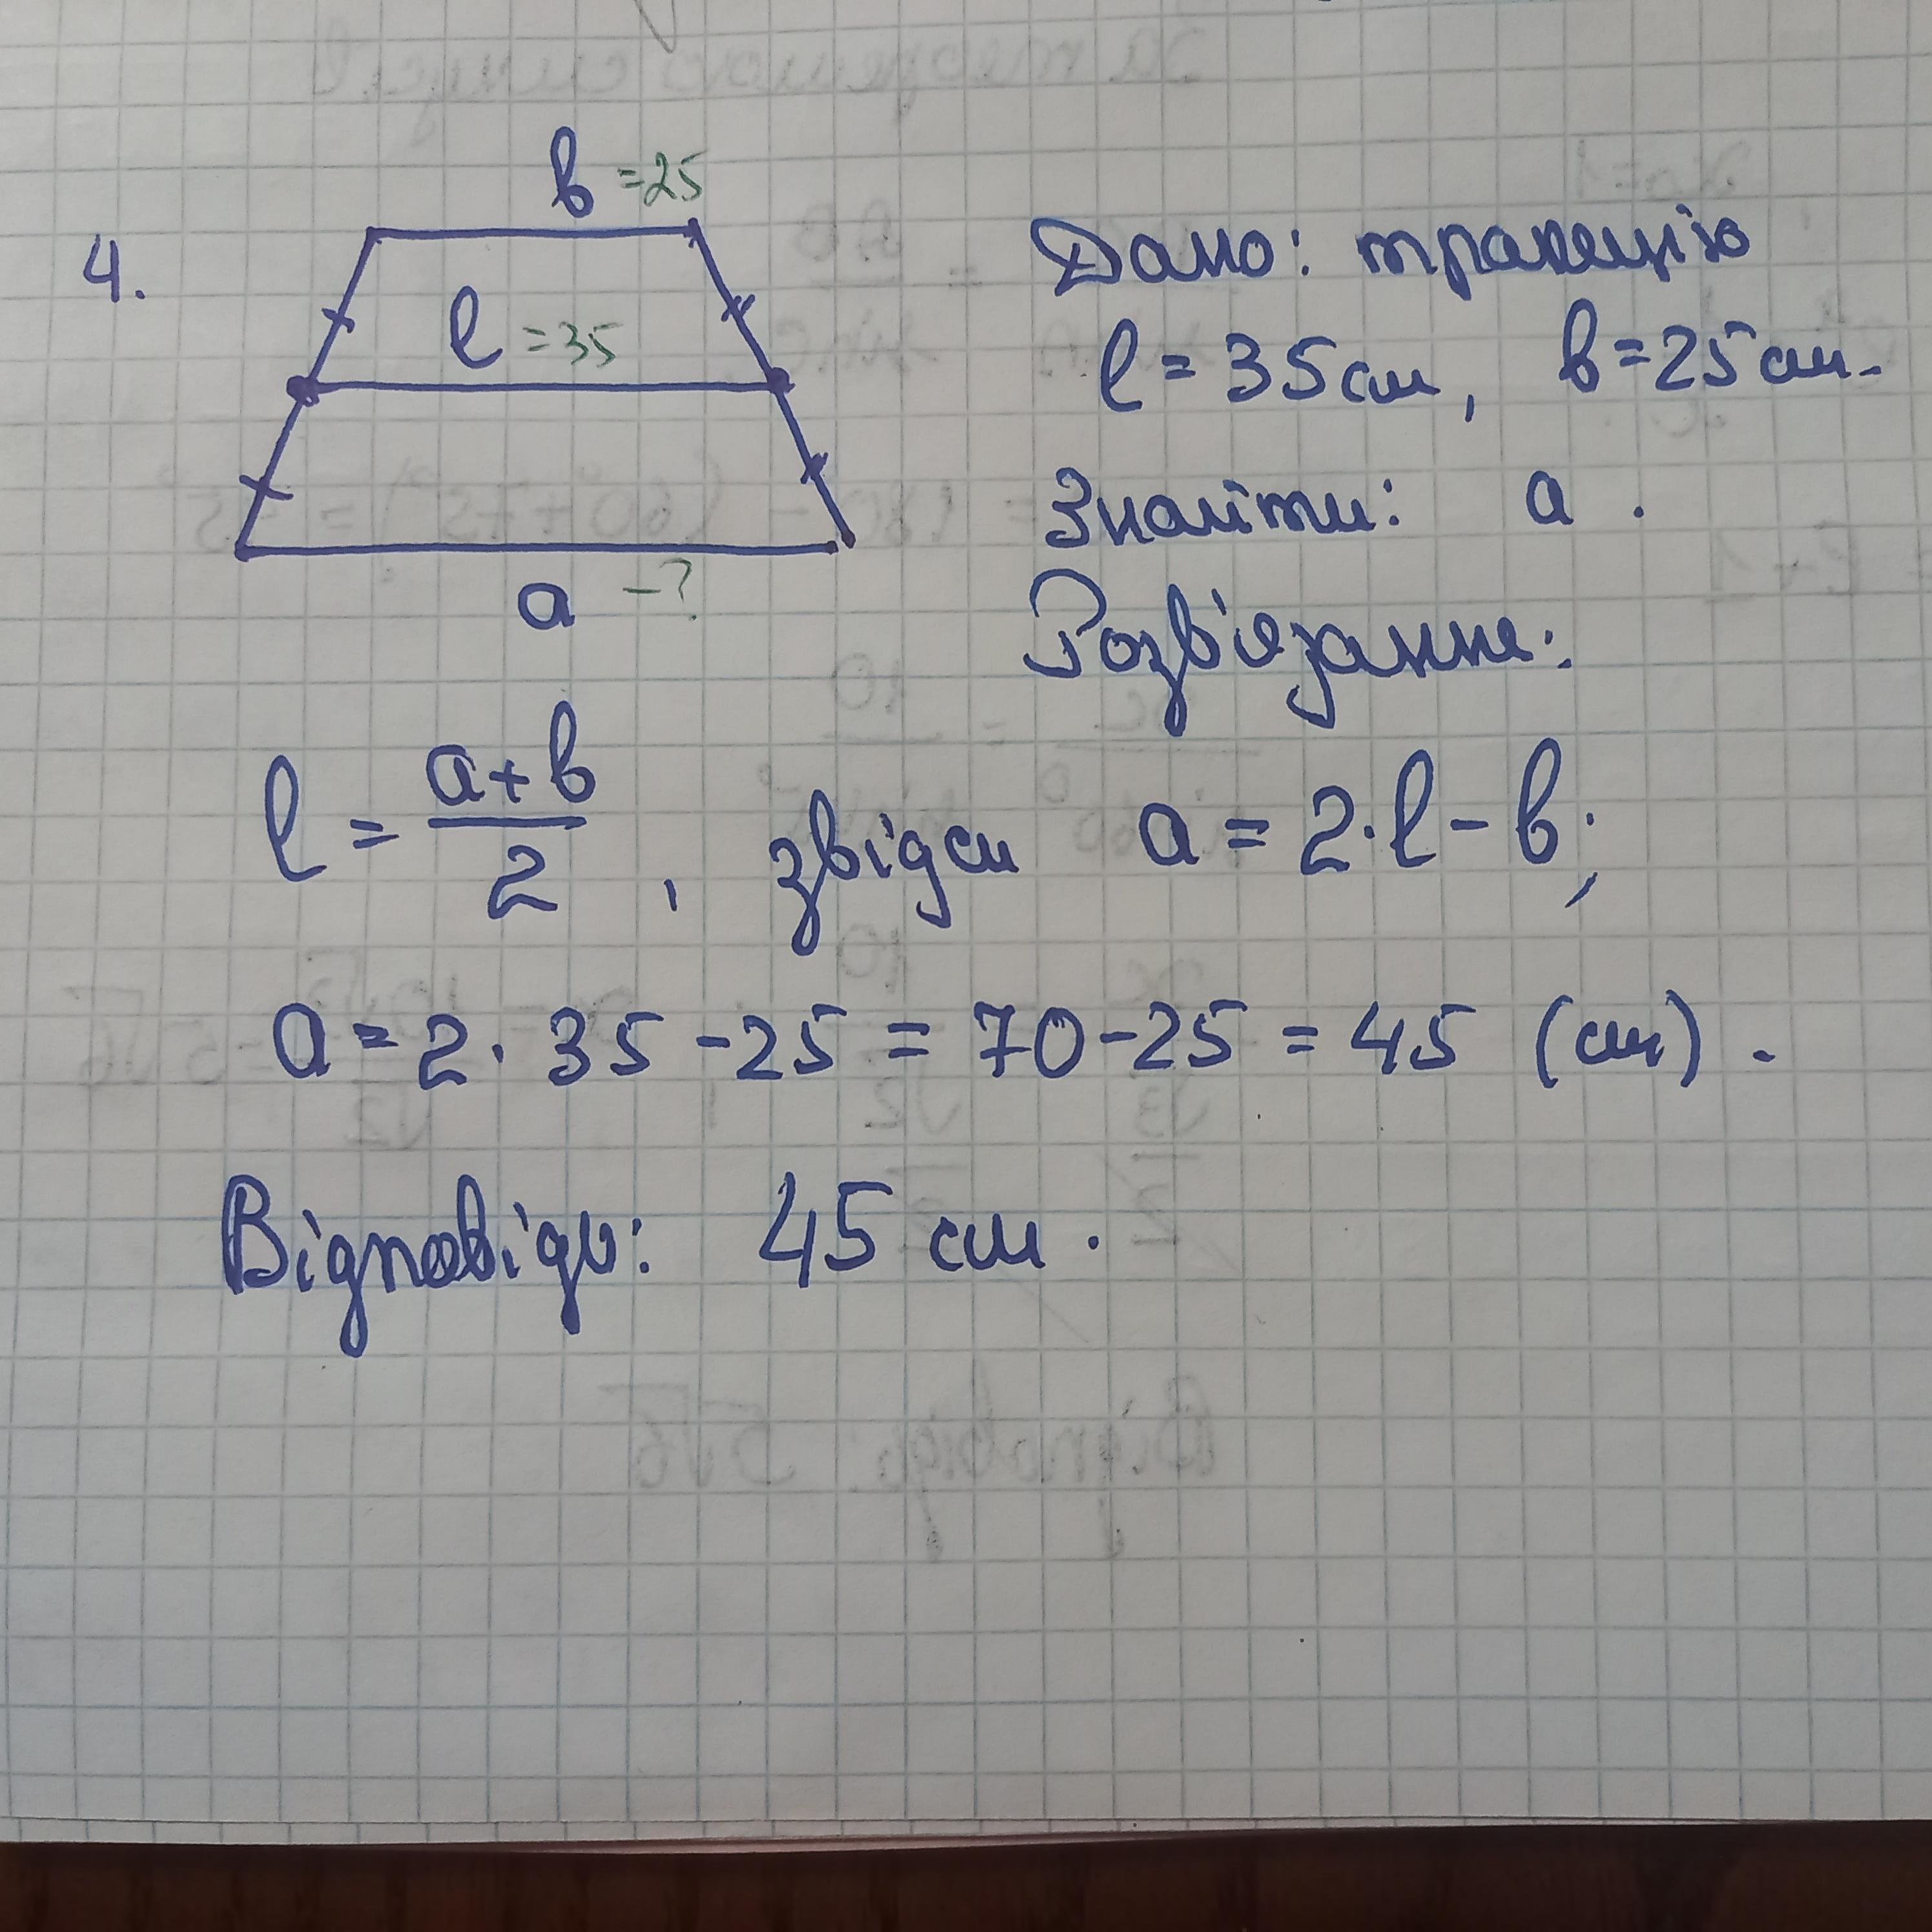 4.
в =25
ℓ =35
а -?
Дано: трапецію
ℓ = 35см, в=25см.
Знайти: а.
Розв'язання:
ℓ = \frac{а+в}{2}, звідси а = 2·ℓ-в;
а = 2·35-25 = 70-25 = 45 (см).
Відповідь: 45 см.